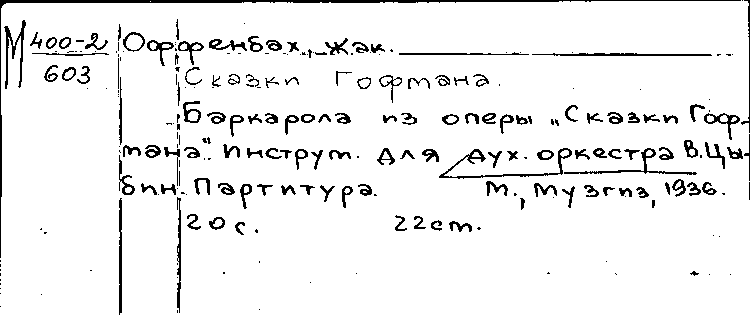 М 400-2
603
Оффенбах, Жак.
Сказки Гофмана.
Баркарола из оперы „Сказки Гоф-
мана". Инструм. для дух. оркестра В. Цы-
бин. Партитура. М., Музгиз, 1936.
20 с. 22 см.